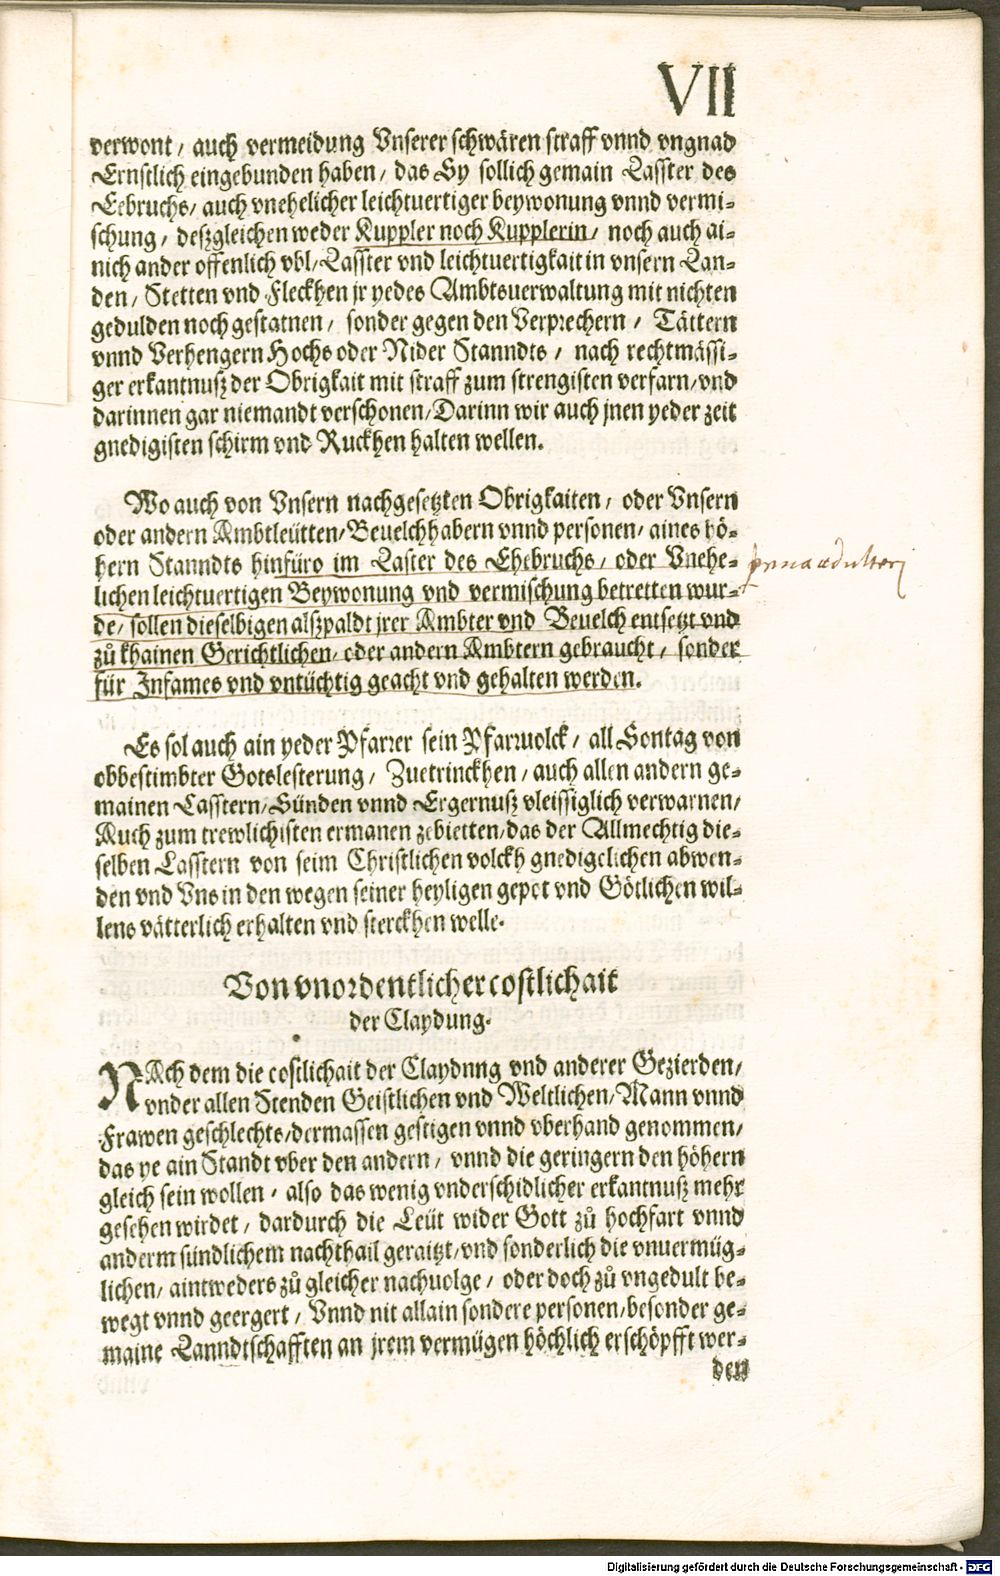 VII
verwont / auch vermeidung Vnserer schwären straff vnnd vngnad
Ernstlich eingebunden haben / das Sy sollich gemain Lasster des
Eebruchs / auch vnehelicher leichtuertiger beywonung vnnd vermi-
schung / deszgleichen weder Kuppler noch Kupplerin / noch auch ai-
nich ander offenlich vbl / Lasster vnd leichtuertigkait in vnsern Lan-
den / Stetten vnd Fleckhen jr yedes Ambtsuerwaltung mit nichten
gedulden noch gestatnen / sonder gegen den Verprechern / Tättern
vnnd Verhengern Hochs oder Nider Stanndts / nach rechtmässi-
ger erkantnusz der Obrigkait mit straff zum strengisten verfarn / vnd
darinnen gar niemandt verschonen / Darinn wir auch jnen yeder zeit
gnedigisten schirm vnd Ruckhen halten wellen.
Wo auch von Vnsern nachgesetzten Obrigkaiten / oder Vnsern
oder andern Ambtleütten / Beuelchhabern vnnd personen / aines hö-
hern Stanndts hinfüro im Laster des Ehebruchs / oder Vnehe-
lichen leichtuertigen Beywonung vnd vermischung betretten wur-
de / sollen dieselbigen alszpaldt jrer Ambter vnd Beuelch entsetzt vnd
zů khainen Gerichtlichen / oder andern Ambtern gebraucht / sonder
für Infames vnd vntüchtig geacht vnd gehalten werden.
poena adulterij
Es sol auch ain yeder Pfarrer sein Pfarruolck / all Sontag von
obbestimbter Gotslesterung / Zuetrinckhen / auch allen andern ge-
mainen Lasstern / Sünden vnnd Ergernusz vleissiglich verwarnen /
Auch zum trewlichisten ermanen zebietten / das der Allmechtig die-
selben Lasstern von seim Christlichen volckh gnedigelichen abwen-
den vnd Vns in den wegen seiner heyligen gepot vnd Götlichen wil-
lens vätterlich erhalten vnd sterckhen welle.
Von vnordentlicher costlichait
der Claydung.
NAch dem die costlichait der Claydnng vnd anderer Gezierden /
vnder allen Stenden Geistlichen vnd Weltlichen / Mann vnnd
Frawen geschlechts / dermassen gestigen vnnd vberhand genommen /
das ye ain Standt vber den andern / vnnd die geringern den höhern
gleich sein wollen / also das wenig vnderschidlicher erkantnusz mehr
gesehen wirdet / dardurch die Leüt wider Gott zů hochfart vnnd
anderm sündlichem nachthail geraitzt / vnd sonderlich die vnuermüg-
lichen / aintweders zů gleicher nachuolge / oder doch zů vngedult be-
wegt vnnd geergert / Vnnd nit allain sondere personen / besonder ge-
maine Lanndtschafften an jrem vermügen höchlich erschöpfft wer-
den
Digitalisierung gefördert durch die Deutsche Forschungsgemeinschaft - DFG